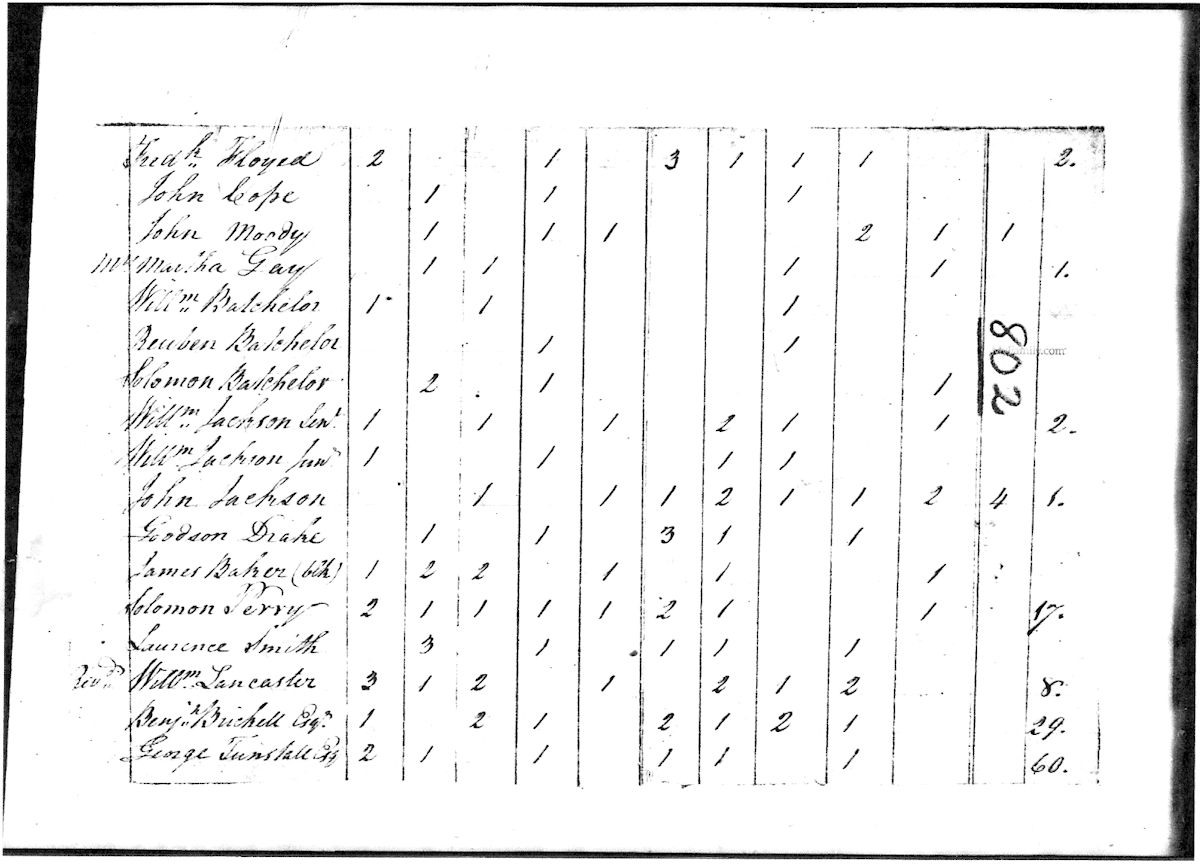 Fredk. Floyed 2 1 3 1 1 1 2.
John Cope 1 1 1
John Moody 1 1 1 2 1 1
Martha Gay 1 1 1 1 1.
Willm. Batchelor 1 1 1
Reuben Batchelor 1 1
Solomon Batchelor 2 1 1
Willm. Jackson Senr. 1 1 1 2 1 1 2.
Willm. Jackson Junr. 1 1 1 1
John Jackson 1 1 1 2 1 1 2 4 1.
Goodson Drake 1 1 3 1 1
James Baker (blk) 1 2 2 1 1 1
Solomon Perry 2 1 1 1 1 2 1 1 17.
Laurence Smith 3 1 1 1 1
Revd. Willm. Lancaster 3 1 2 1 2 1 2 8.
Benjn. Brickell Esqr. 1 2 1 2 1 2 1 29.
George Tunstall Esq 2 1 1 1 1 1 60.
802